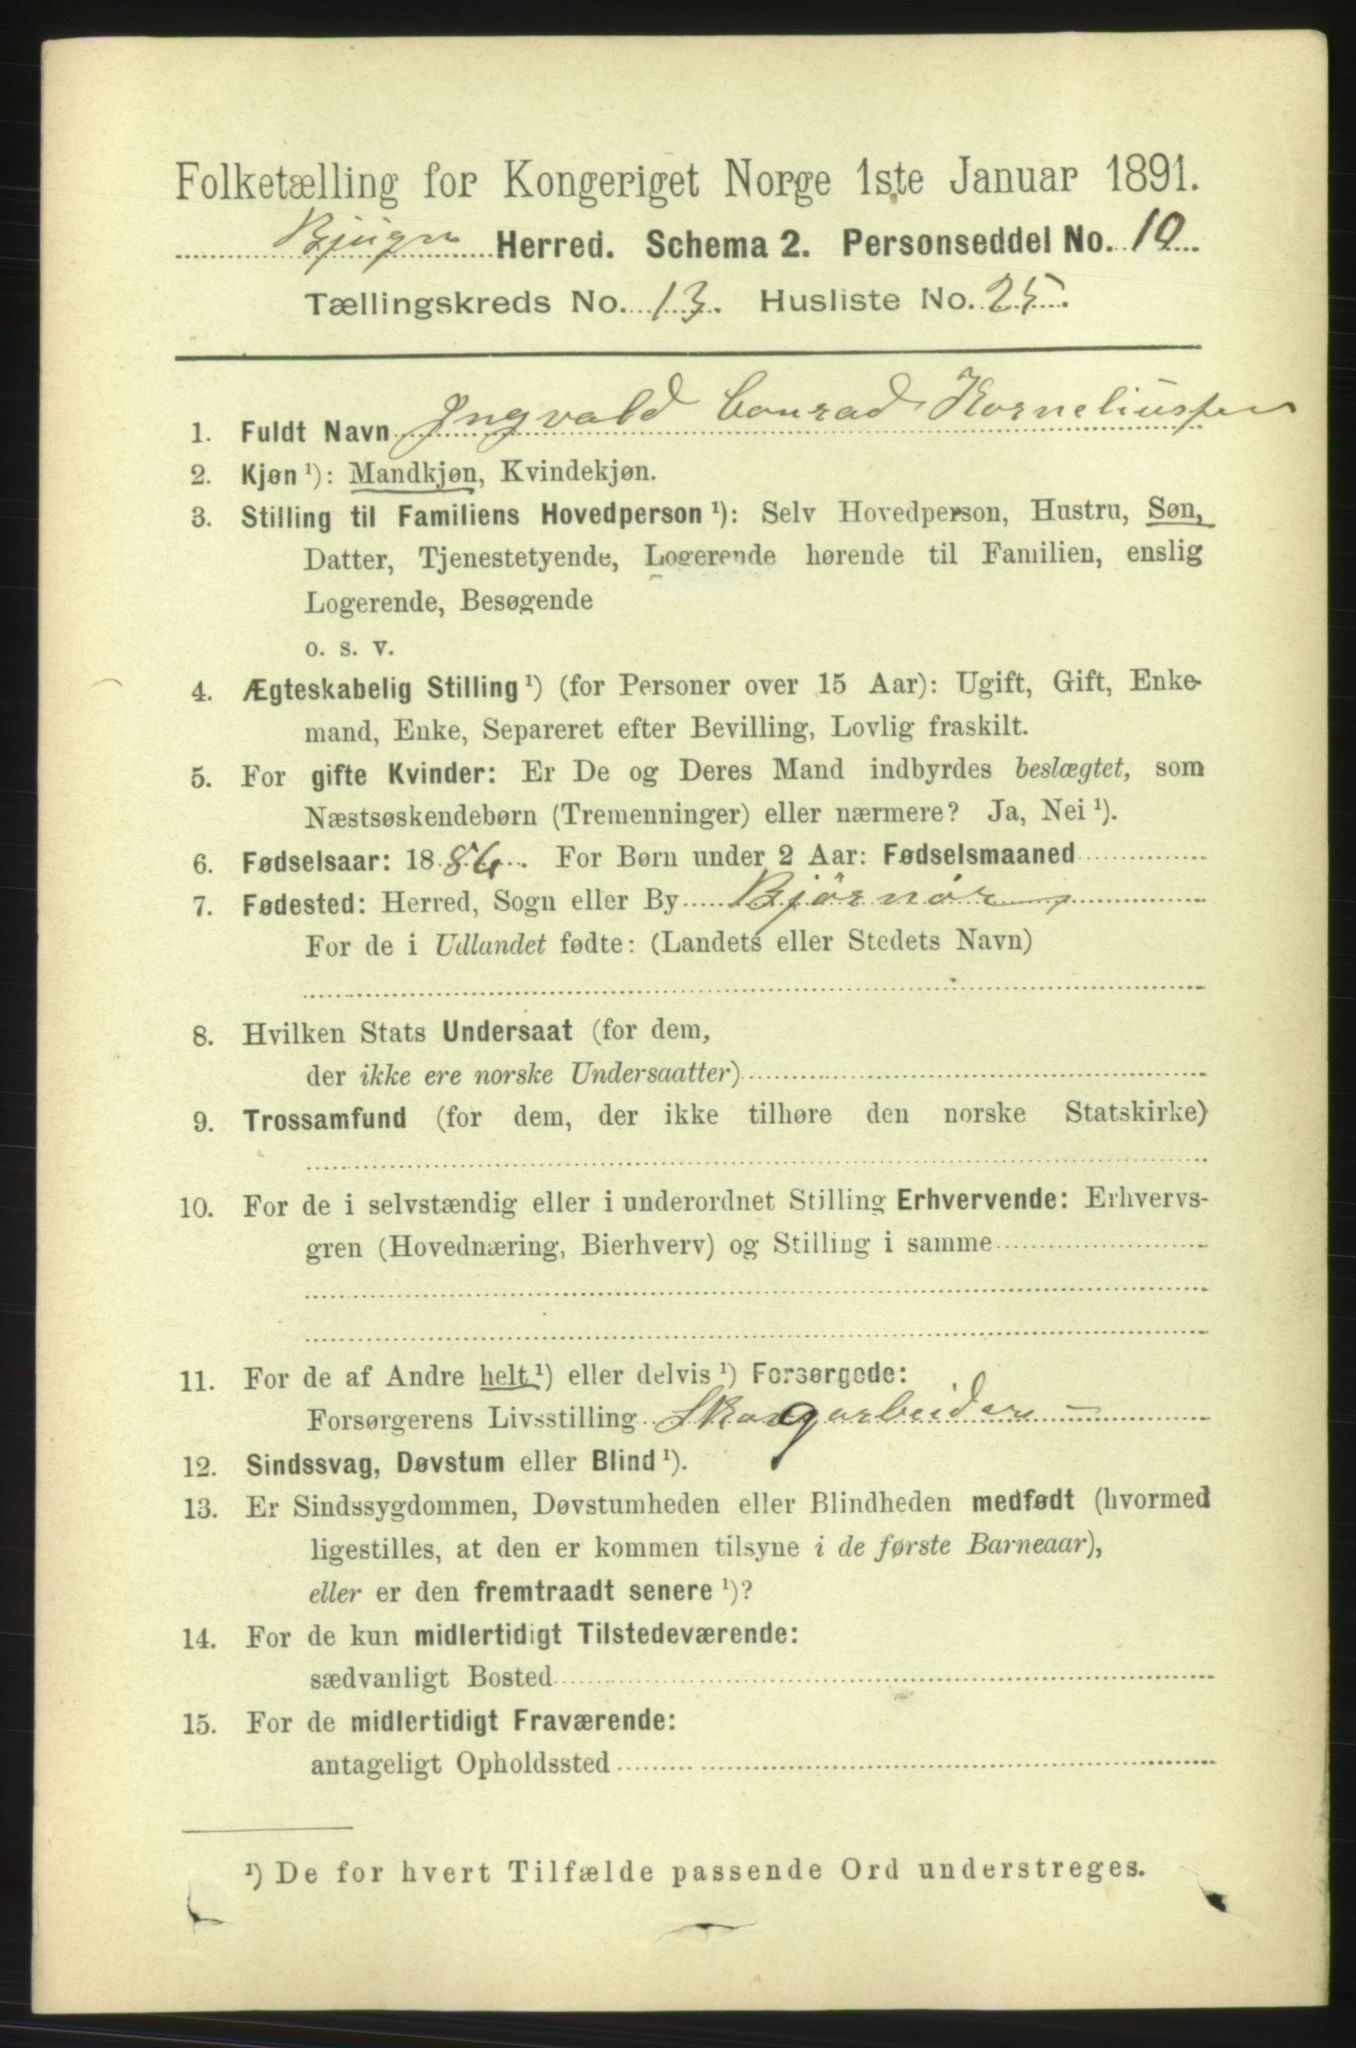 Folketælling for Kongeriget Norge 1ste Januar 1891.
Bjugn Herred. Schema 2. Personseddel No. 10
Tællingskreds No. 13. Husliste No. 25.
1. Fuldt Navn Ingvald Conrad Korneliussen
2. Kjøn ¹): Mandkjøn, Kvindekjøn.
3. Stilling til Familiens Hovedperson ¹): Selv Hovedperson, Hustru, Søn,
Datter, Tjenestetyende, Logerende hørende til Familien, enslig
Logerende, Besøgende
o. s. v.
4. Ægteskabelig Stilling ¹) (for Personer over 15 Aar): Ugift, Gift, Enke-
mand, Enke, Separeret efter Bevilling, Lovlig fraskilt.
5. For gifte Kvinder: Er De og Deres Mand indbyrdes beslægtet, som
Næstsøskendebørn (Tremenninger) eller nærmere? Ja, Nei ¹).
6. Fødselsaar: 1886. For Børn under 2 Aar: Fødselsmaaned
7. Fødested: Herred, Sogn eller By Bjørnør
For de i Udlandet fødte: (Landets eller Stedets Navn)
8. Hvilken Stats Undersaat (for dem,
der ikke ere norske Undersaatter)
9. Trossamfund (for dem, der ikke tilhøre den norske Statskirke)
10. For de i selvstændig eller i underordnet Stilling Erhvervende: Erhvervs-
gren (Hovednæring, Bierhverv) og Stilling i samme
11. For de af Andre helt ¹) eller delvis ¹) Forsørgede:
Forsørgerens Livsstilling Skogarbeider –
12. Sindssvag, Døvstum eller Blind ¹).
13. Er Sindssygdommen, Døvstumheden eller Blindheden medfødt (hvormed
ligestilles, at den er kommen tilsyne i de første Barneaar),
eller er den fremtraadt senere ¹)?
14. For de kun midlertidigt Tilstedeværende:
sædvanligt Bosted
15. For de midlertidigt Fraværende:
antageligt Opholdssted
¹) De for hvert Tilfælde passende Ord understreges.